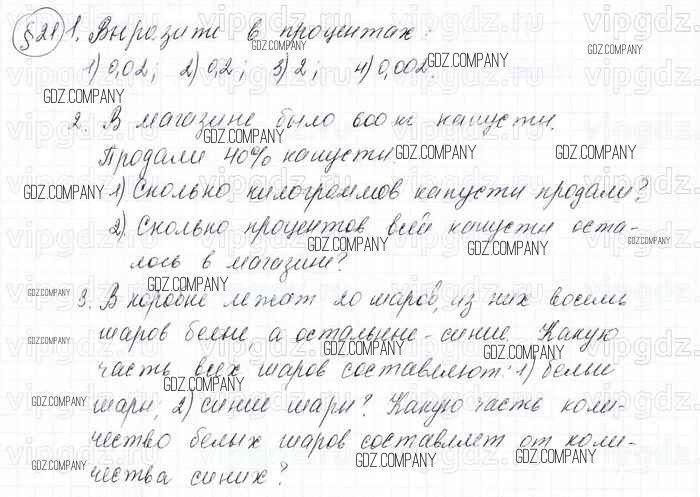 §21 1. Выразите в процентах:
1) 0,02; 2) 0,2; 3) 2; 4) 0,002.
2. В магазине было 600 кг капусты.
Продали 40% капусты.
1) Сколько килограммов капусты продали?
2) Сколько процентов всей капусты оста-
лось в магазине?
3. В коробке лежат 20 шаров, из них восемь
шаров белые, а остальные - синие. Какую
часть всех шаров составляют: 1) белые
шары; 2) синие шары? Какую часть коли-
чество белых шаров составляет от коли-
чества синих?
GDZ.COMPANY
vipgdz.ru